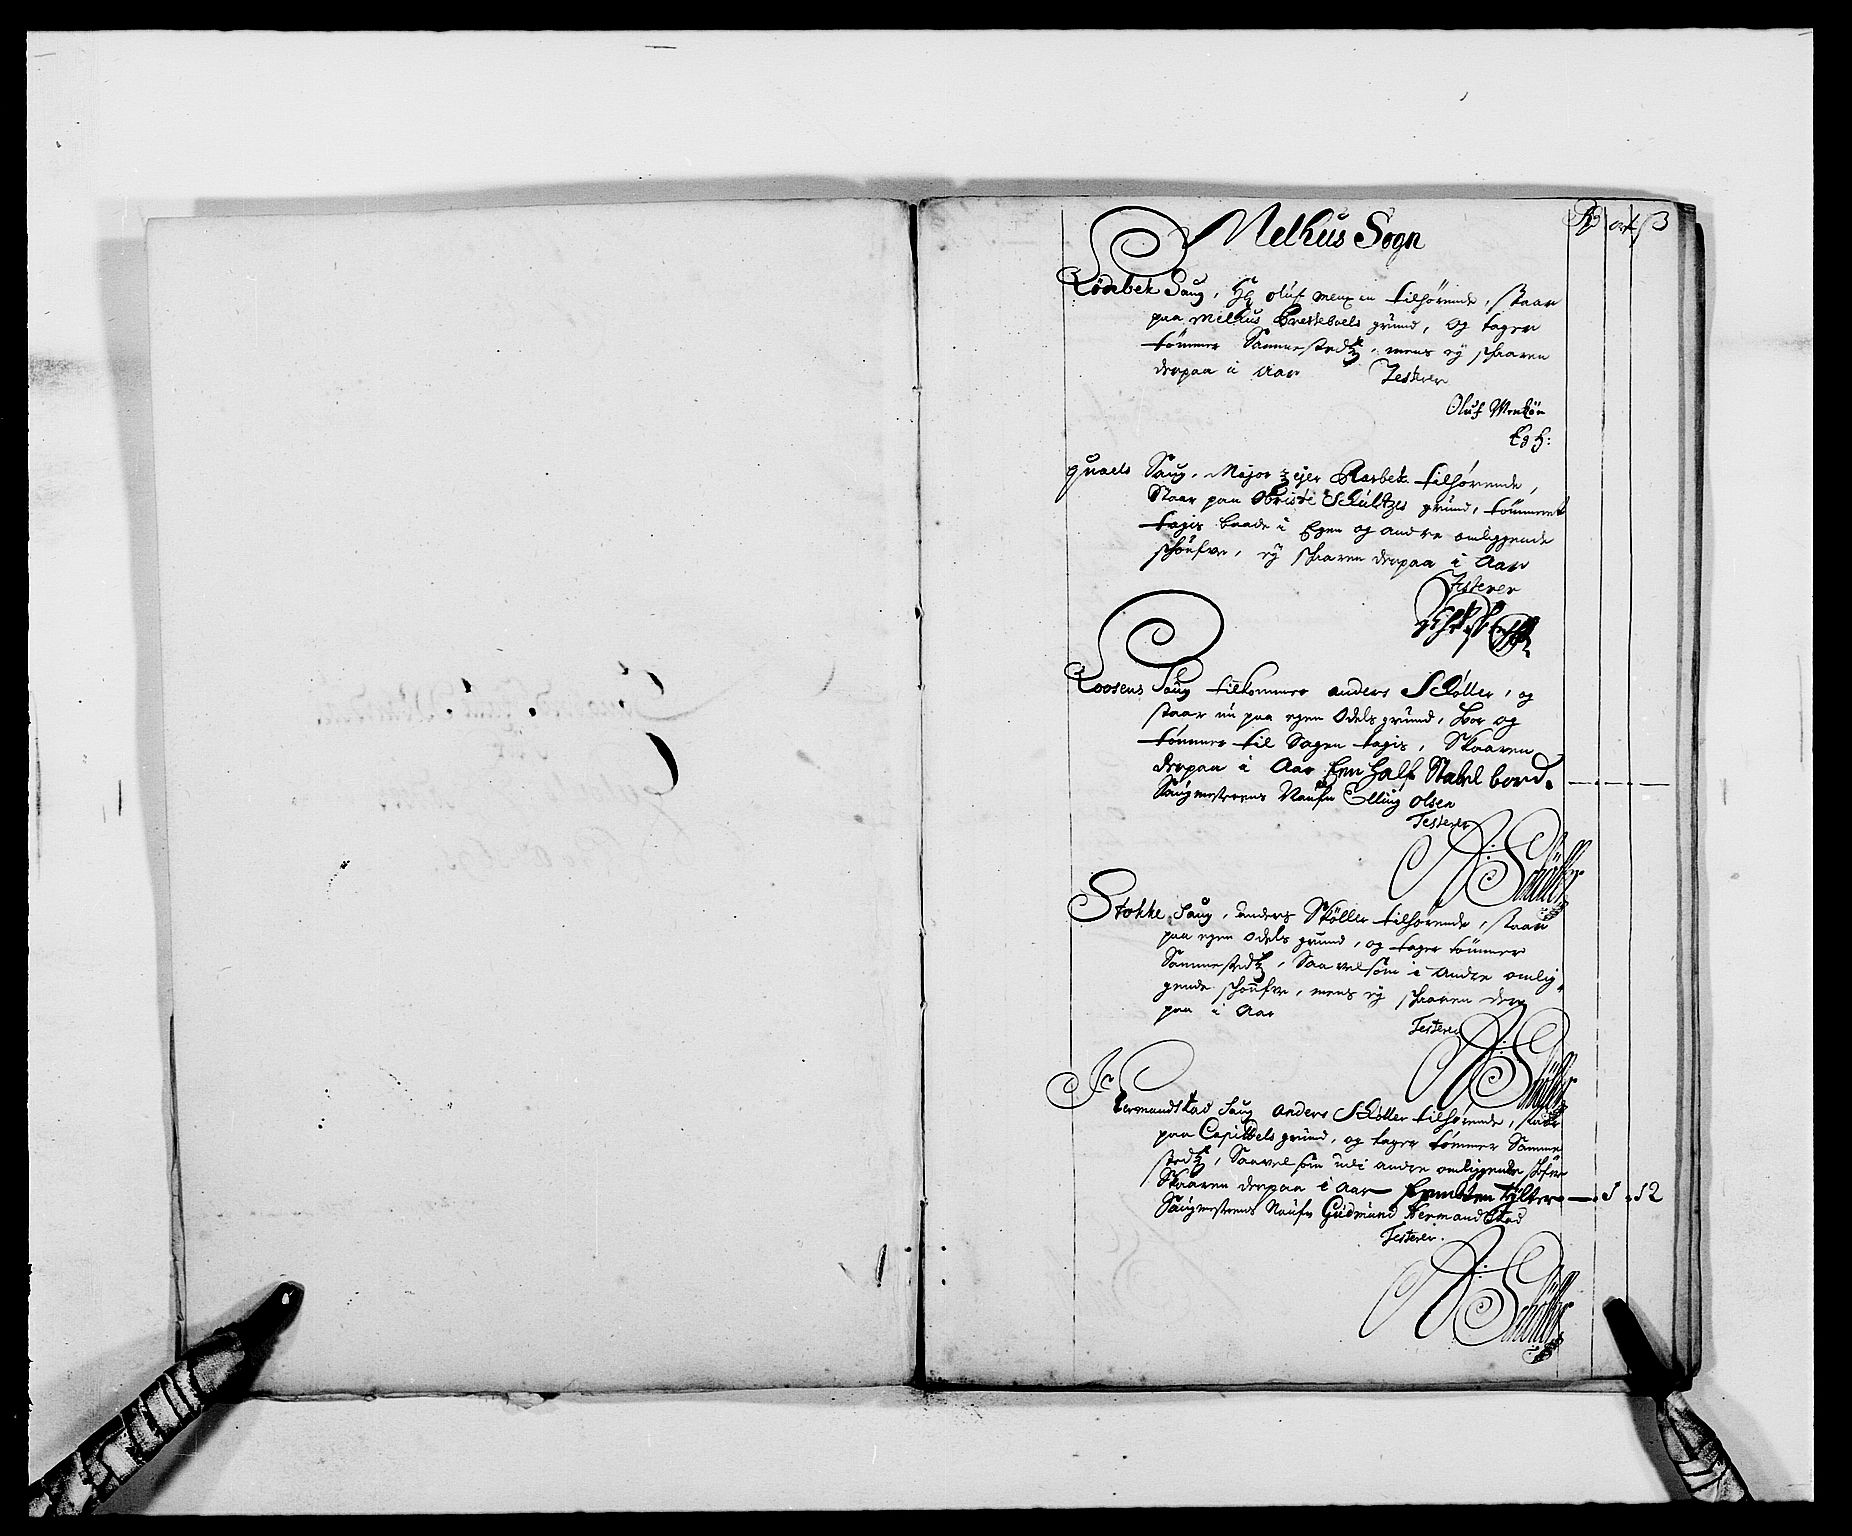 Melhus Sogn
Rd ort ß
Lödebek Saug, Hr Oluf Mentzen tilhörende, staar
paa Melhus Presteboels grund, og tager
tömmer Sammestedtz, mens ey skaaren
derpaa i Aar Testerer
Oluf Mentzön
Eg h:
Saug, Major tilhörende,
Staar paa Obriste Schultzes grund, tömmeret
tagis baade i Egen og andre omliggende
schoufve, ey skaaren derpaa i Aar
Testerer
Loosens Saug tilkommer anders Schöller, og
staar nu paa egen Odels grund, hvor og
tömmer til Sagen tagis, Skaaren
derpaa i Aar Een half Stabel bord.
Saugmesterens Naufn Elling Olsen
Testerer
A: Schöller
Stokke Saug, Anders Schöller tilhörende, staar
paa egen Odels grund, og tager tömmer
Sammestedtz, Saavelsom i Andre omlig-
gende schoufve, mens ey skaaren der
paa i Aar
Testerer
A: Schöller
Hermandstad Saug Anders Schöller tilhörende, staar
paa Capittels grund, og tager tömmer Samme
stedtz, Saavelsom udi andre omliggende
Skaaren derpaa i Aar Tylter 1 . 12
Saugmesterens Naufn Gudmund Hermandstad
Testerer.
A: Schöller